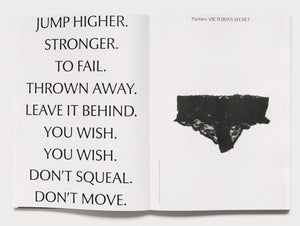 JUMP HIGHER.
STRONGER.
TO FAIL.
THROWN AWAY.
LEAVE IT BEHIND.
YOU WISH.
YOU WISH.
DON'T SQUEAL.
DON'T MOVE.
Panties: VICTORIA'S SECRET